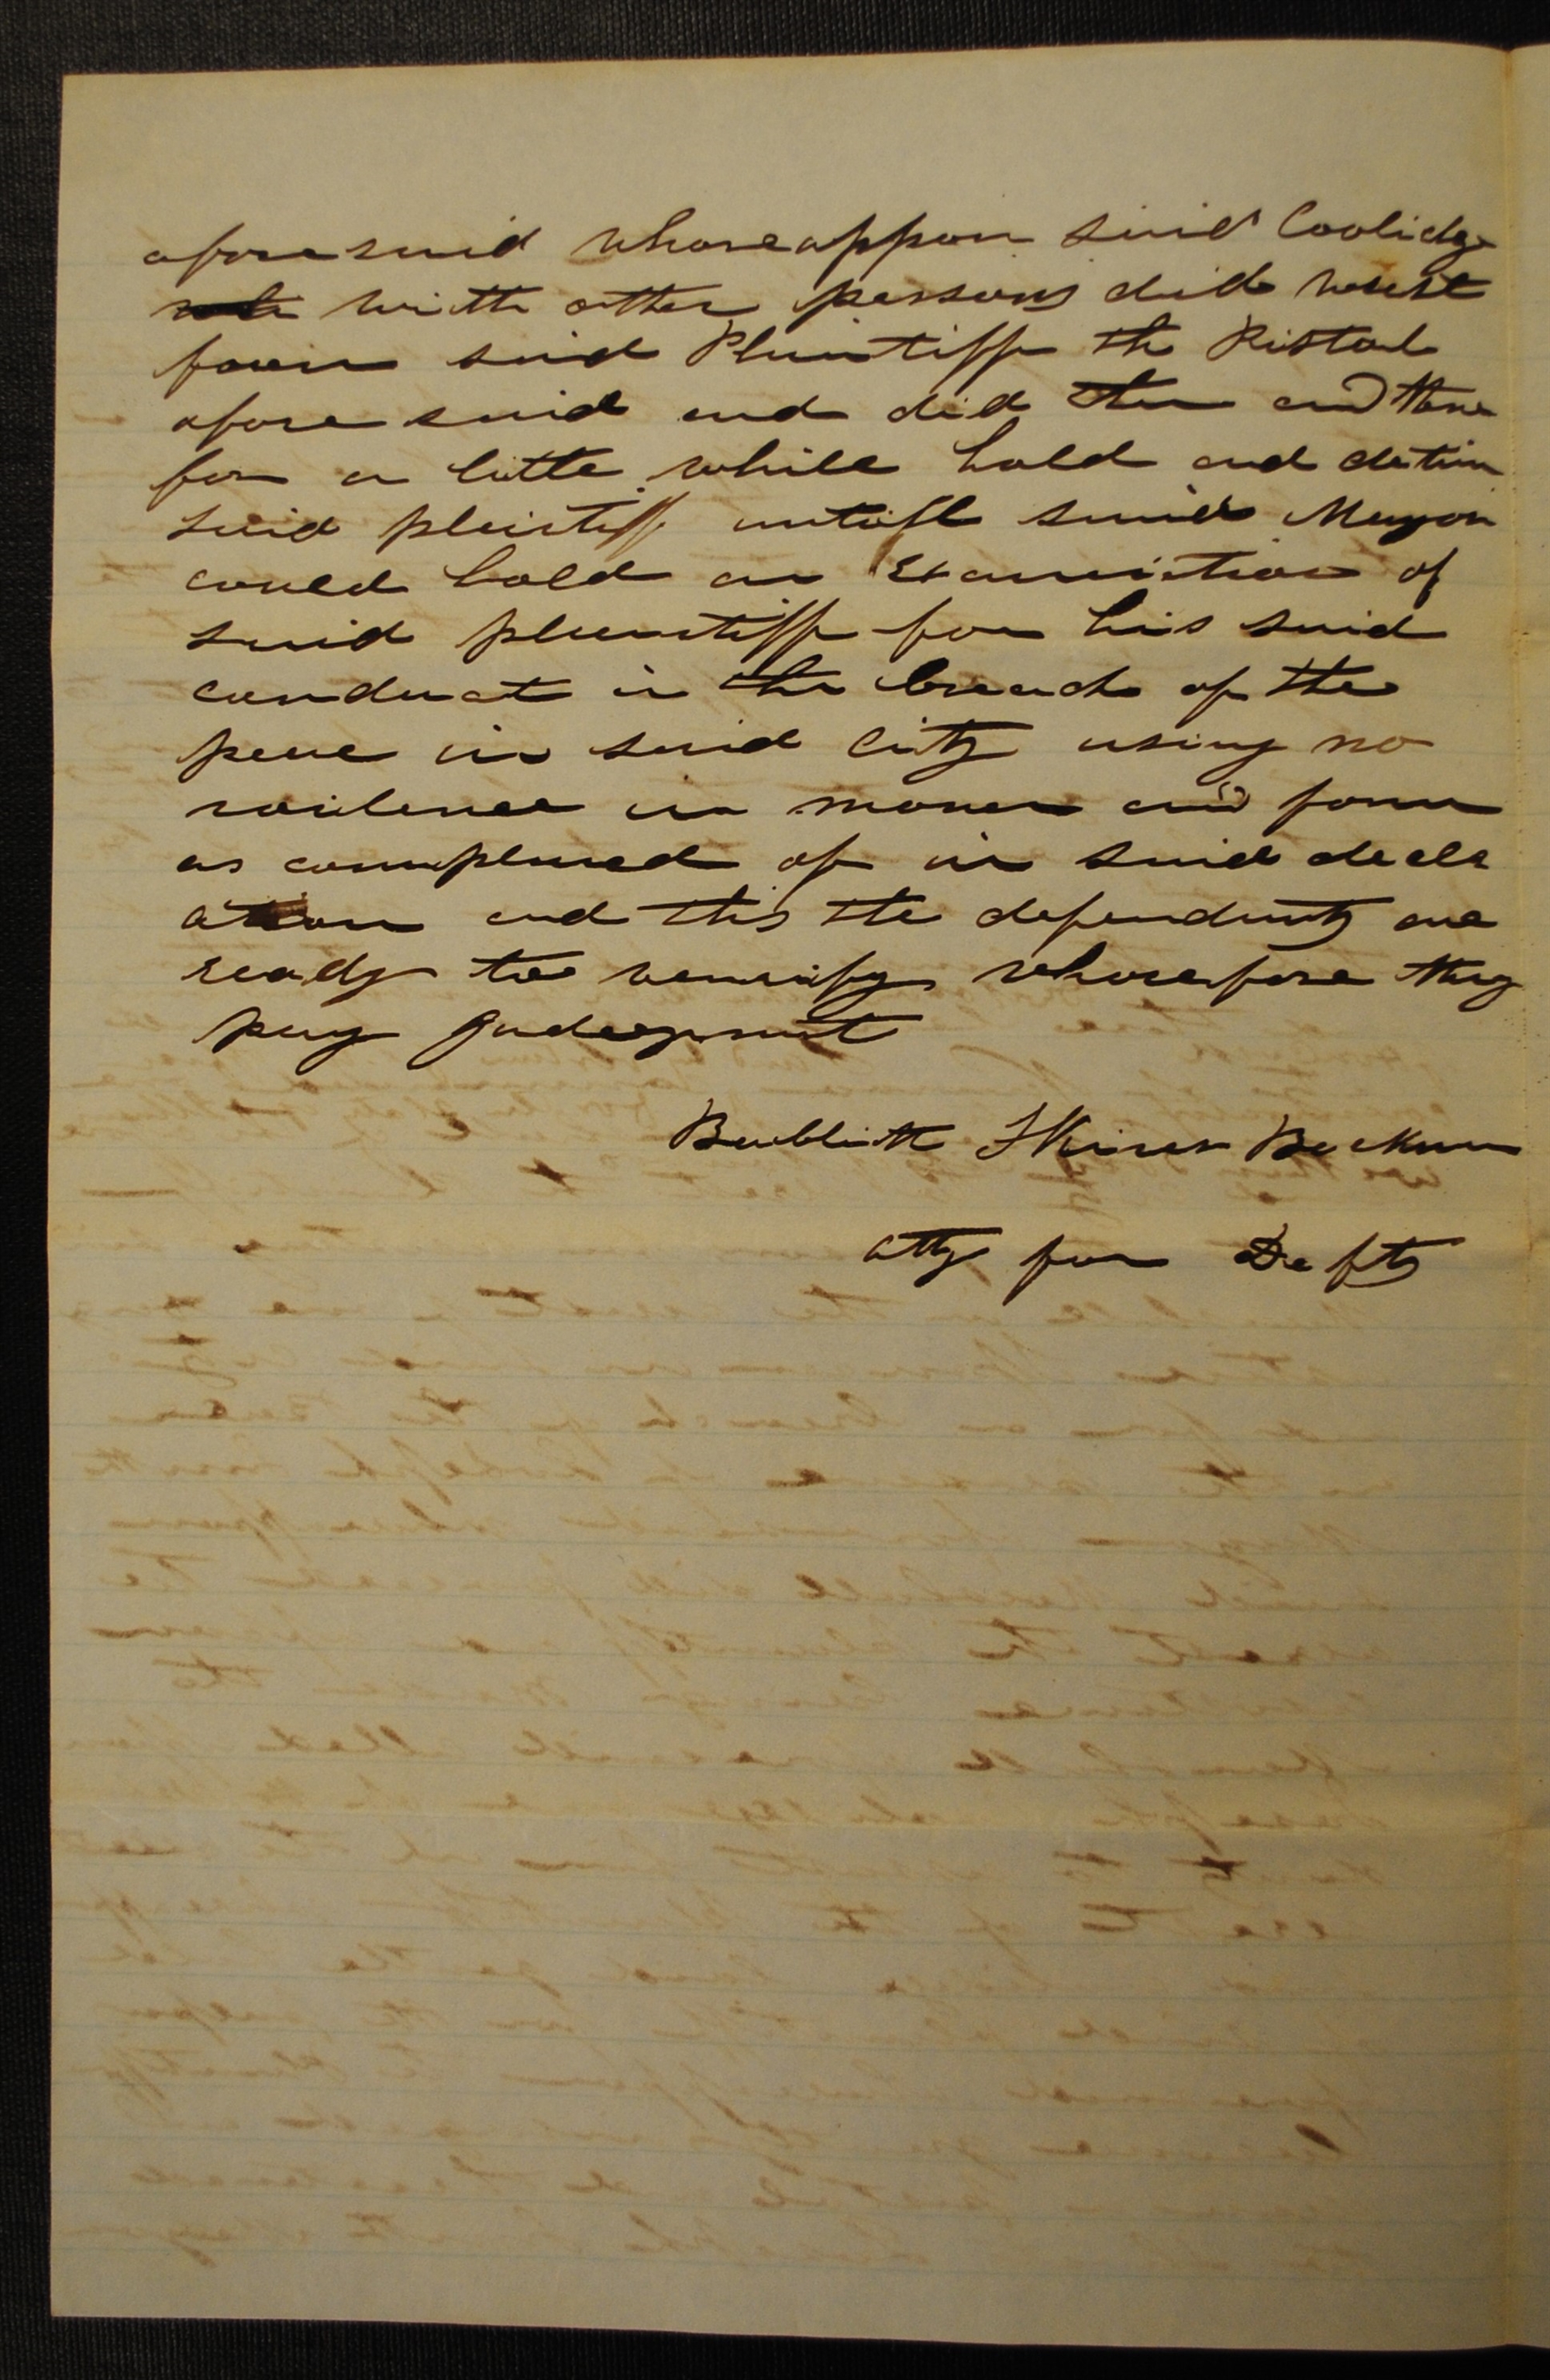 aforesaid whereuppon said Coolidge
with other persons did wrest
from said Plaintiff the Pistol
aforesaid and did then and there
for a little while hold and detain
said plaintiff untill said Mayor
could hold an Examination of
said plaintiff for his said
conduct in the breach of the
peace in said City using no
voilence in maner and form
as complained of in said decla
ation and this the defendants are
ready to verify wherefore they
pray Judegment
Skiner
atty for Defts